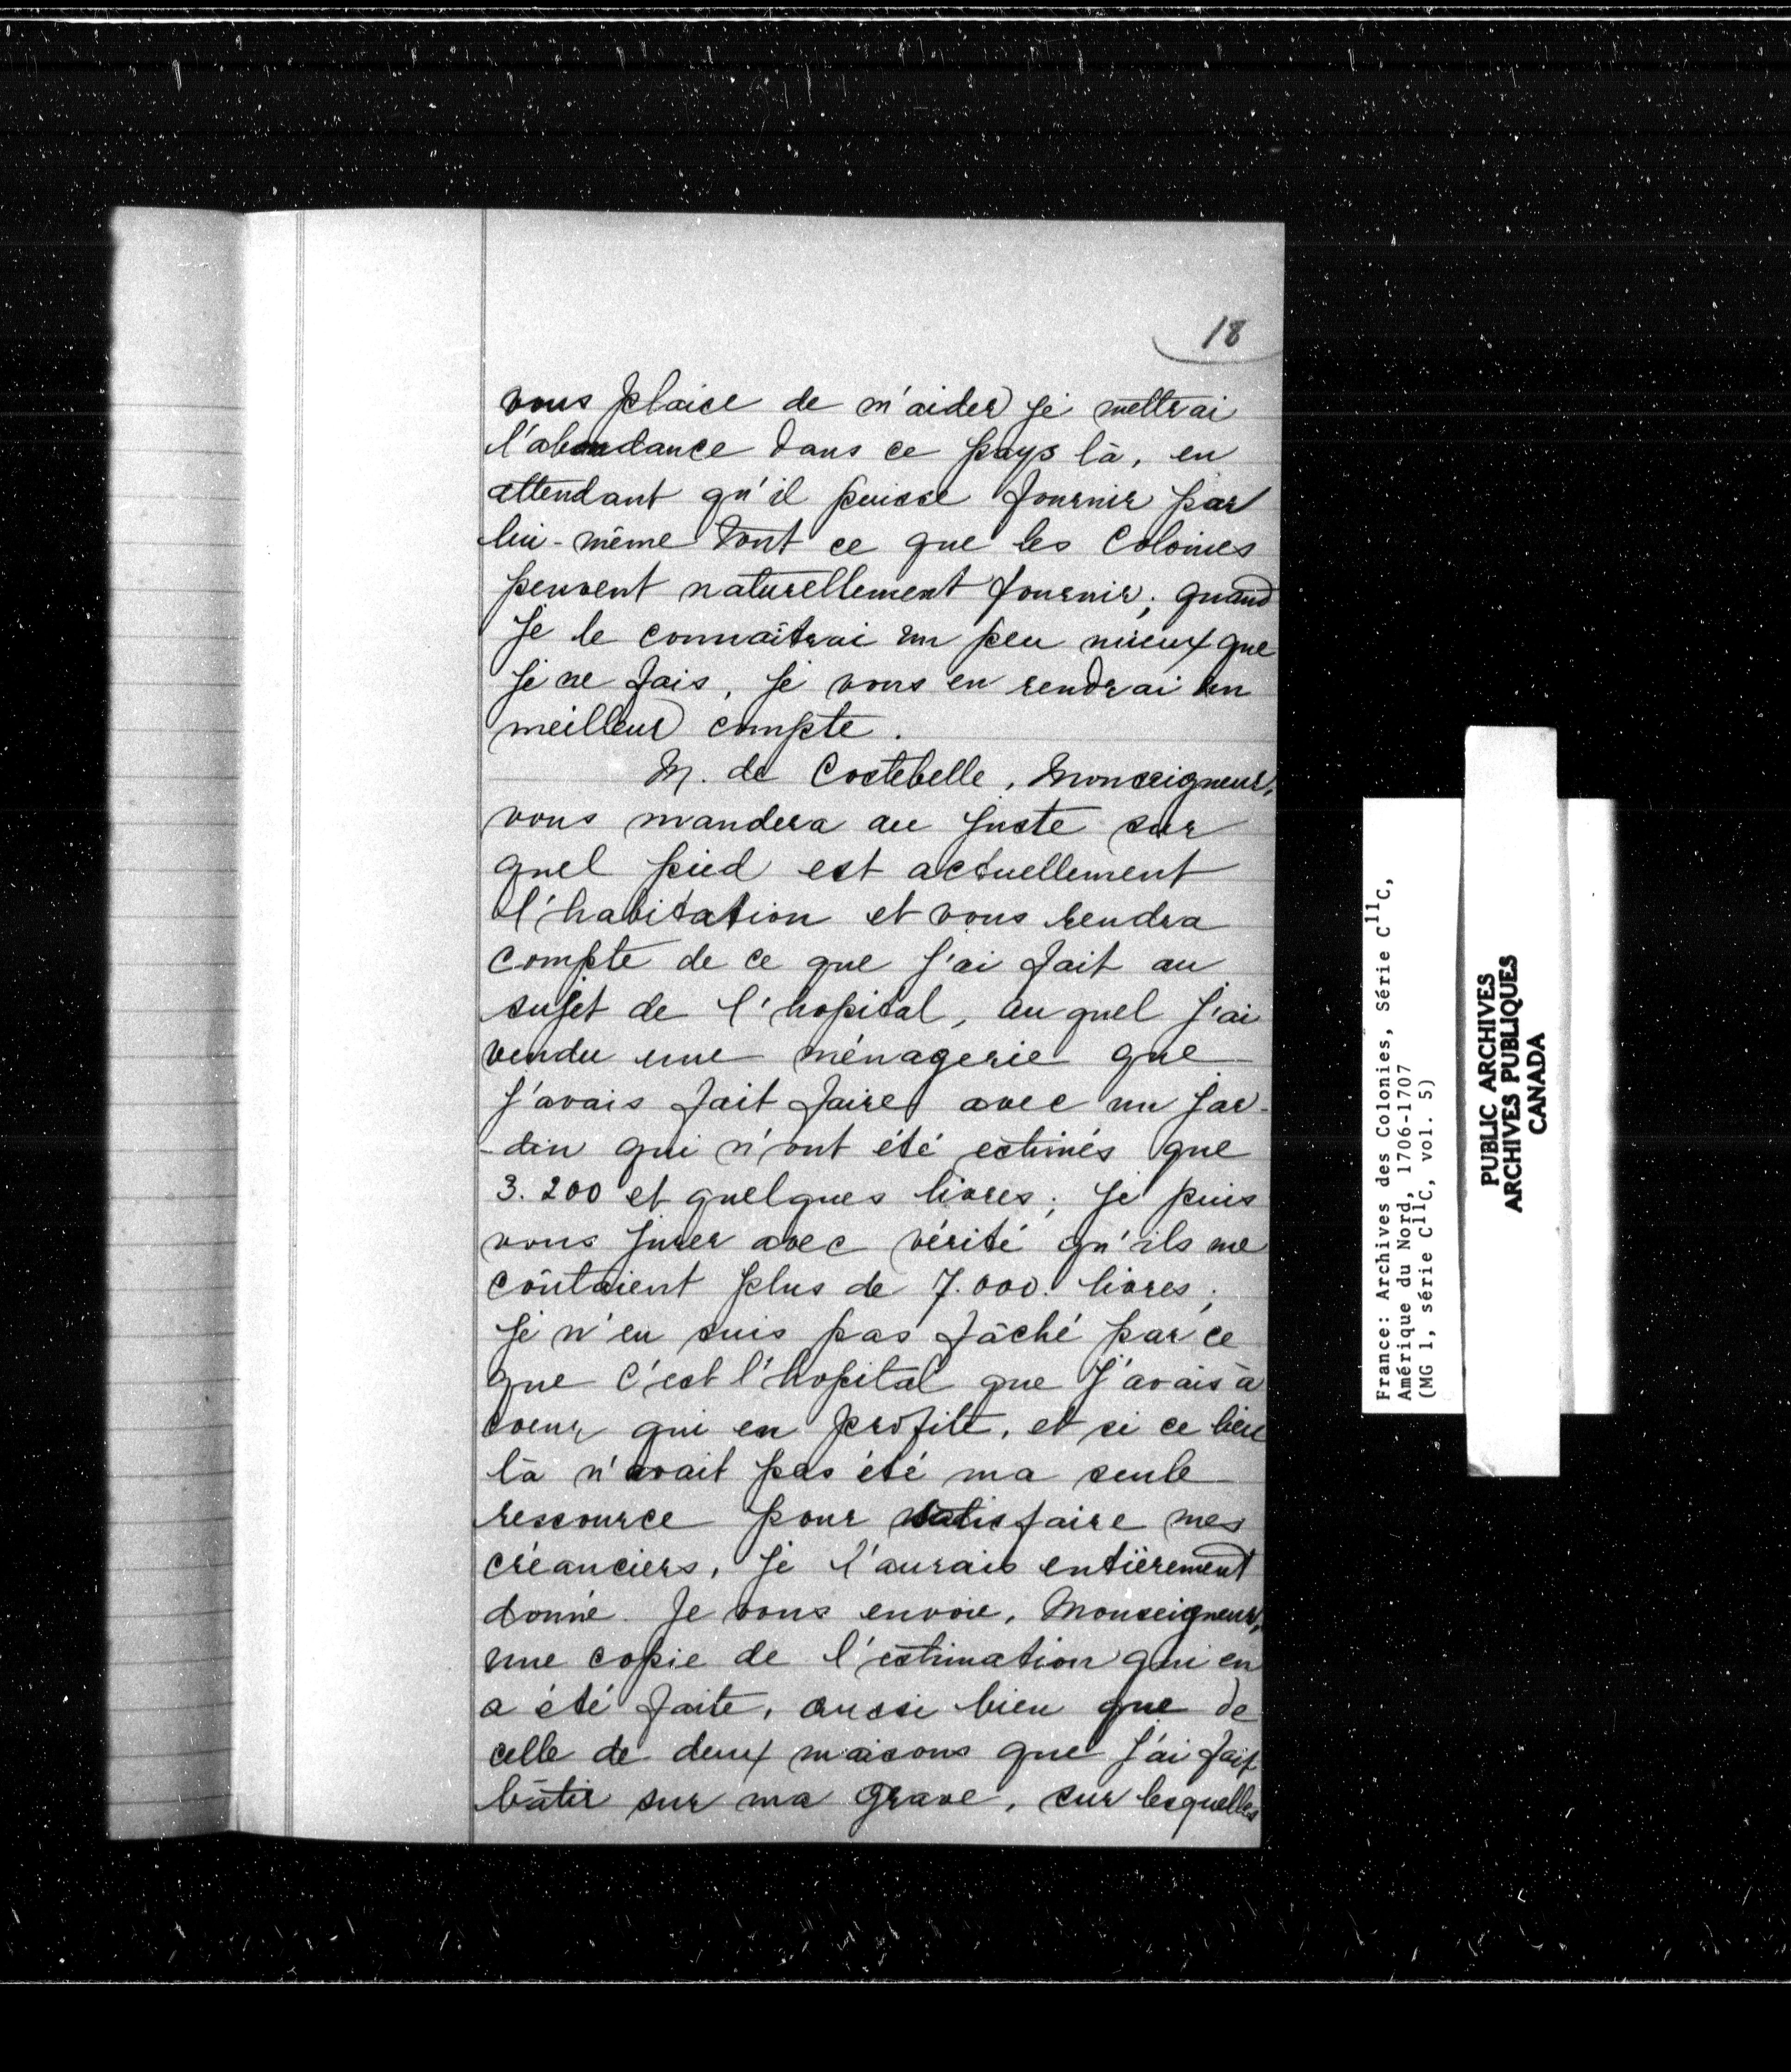 18
vous plaise de m'aider je mettrai
l'abondance dans ce pays là, en
attendant qu'il puisse fournir par
lui-même tout ce que les Colonies
peuvent naturellement fournir; quand
je le connaîtrai un peu mieux que
je ne fais, je vous en rendrai un
meilleur compte.
M. de Costebelle, Monseigneur,
vous mandera au juste sur
quel pied est actuellement
l'habitation et vous rendra
compte de ce que j'ai fait au
sujet de l'hopital, auquel j'ai
vendu une ménagerie que
j'avais fait faire avec un jar-
-din qui n'ont été estimés que
3.200 et quelques livres; je puis
vous jurer avec vérité qu'ils me
coûtaient plus de 7.000. livres;
je n'en suis pas fâché par ce
que c'est l'hopital que j'avais à
coeur qui en profite, et si ce lieu
là n'avait pas été ma seule
ressource pour satisfaire mes
créanciers, je l'aurais entièrement
donné. Je vous envoie, Monseigneur,
une copie de l'estimation qui en
a été faite, aussi bien que de
celle de deux maisons que j'ai fait
bâtir sur ma grave, sur lesquelles
France: Archives des Colonies, Série C11C,
Amérique du Nord, 1706-1707
(MG 1, série C11C, vol. 5)
PUBLIC ARCHIVES
ARCHIVES PUBLIQUES
CANADA